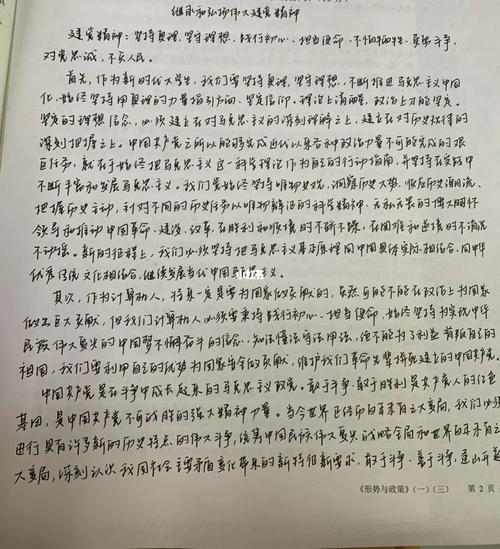 继承和弘扬伟大建党精神
建党精神：坚持真理、坚守理想、践行初心、担当使命、不怕牺牲、英勇斗争、
对党忠诚、不负人民。
首先，作为新时代大学生，我们需要坚持真理，坚守理想，不断推进马克思主义中国
化，始终坚持用真理的力量指引方向、坚定信仰，理论上清醒，政治上才能坚定。
坚定的理想信念，必须建立在对马克思主义的深刻理解之上，建立在对历史规律的
深刻把握之上。中国共产党之所以能够完成近代以来各种政治力量不可能完成的艰
巨任务，就在于始终把马克思主义这一科学理论作为自己的行动指南，并坚持在实践中
不断丰富和发展马克思主义。我们党始终坚持唯物史观，洞察历史大势、顺应历史潮流、
把握历史主动，针对不同的历史任务以唯物辩证的科学精神、无私无畏的博大胸怀
领导和推动中国革命、建设、改革，在胜利和顺境时不骄不躁，在困难和逆境时不消沉
不动摇。新的征程上，我们必须坚持把马克思主义基本原理同中国具体实际相结合、同中华
优秀传统文化相结合，继续发展当代中国马克思主义。
其次，作为计算机人，将来一定是要为国家做贡献的，虽然可能不能在政治上为国家
做出巨大贡献，但我们计算机人必须要秉持践行初心、担当使命，始终坚持为实现中华
民族伟大复兴的中国梦不懈奋斗的信念，知法懂法守法用法，绝不能为了利益背叛自己的
祖国，我们要利用自己的优势为国家安全做贡献，维护我们革命先辈拼死建立的中国共产党。
中国共产党是在斗争中成长起来的马克思主义政党。敢于斗争、敢于胜利是共产党人的红色
基因，是中国共产党不可战胜的强大精神力量。当今世界正经历百年未有之大变局，我们必须
进行具有许多新的历史特点的伟大斗争，统筹中华民族伟大复兴战略全局和世界百年未有之
大变局，深刻认识我国社会主要矛盾变化带来的新特征新要求，敢于斗争、善于斗争，逢山开道
《形势与政策》（一）（三） 第 2 页